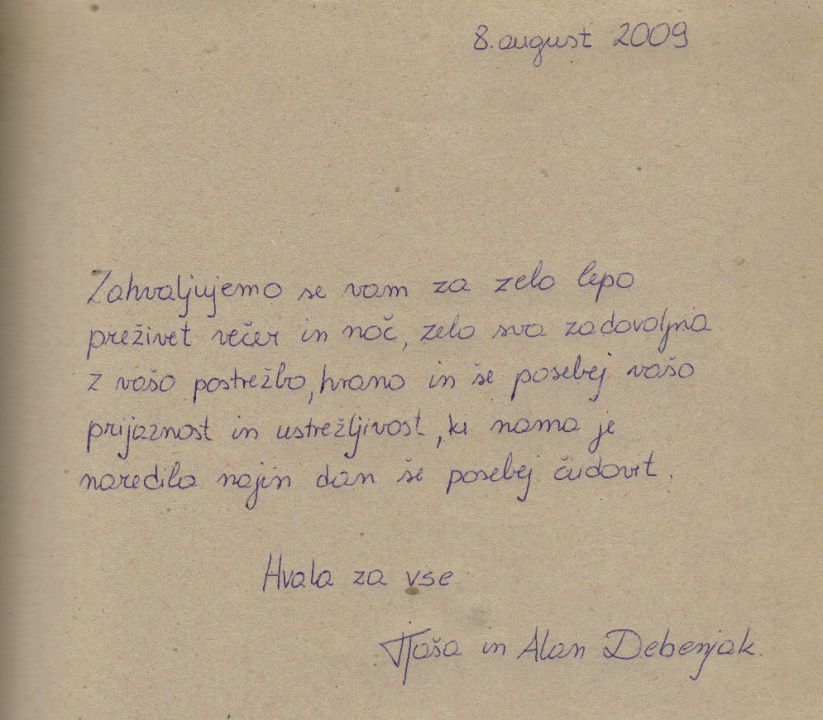 8. august 2009
Zahvaljujemo se vam za zelo lepo
preživet večer in noč, zelo sva zadovoljna
z vašo postrežbo, hrano in še posebej vašo
prijaznost in ustrežljivost, ki nama je
naredila najin dan še posebej čudovit.
Hvala za vse
Tjaša in Alan Debenjak.